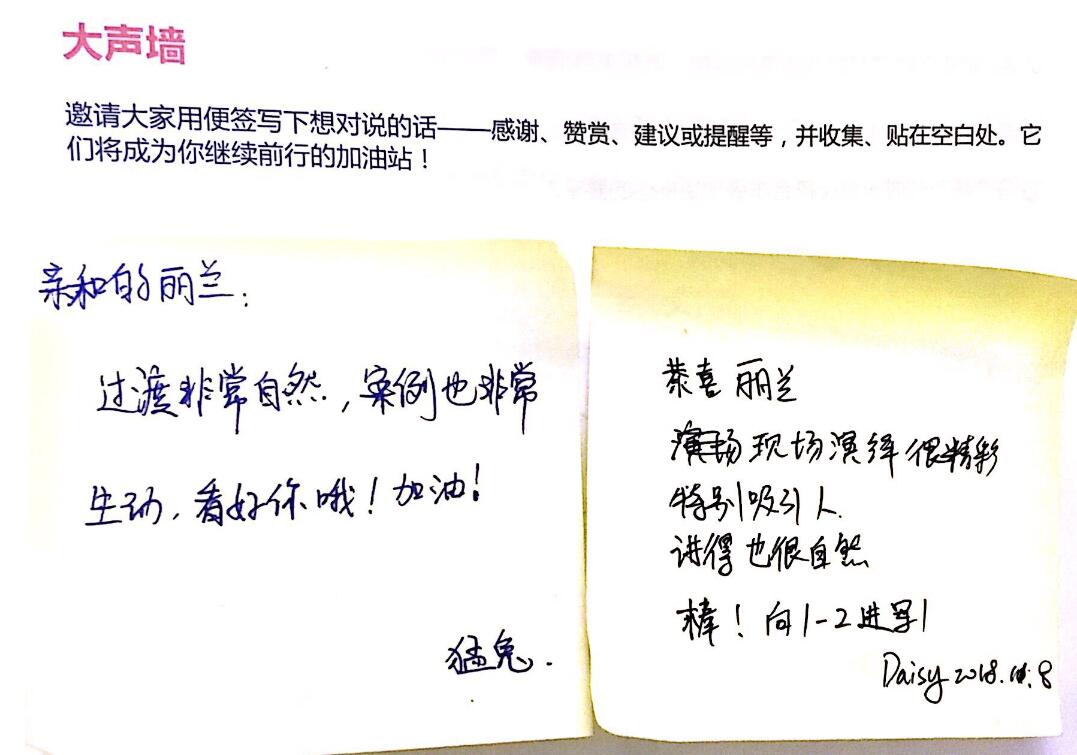 大声墙
邀请大家用便签写下想对说的话——感谢、赞赏、建议或提醒等，并收集、贴在空白处。它
们将成为你继续前行的加油站！
亲和的丽兰：
过渡非常自然，案例也非常
生动，看好你哦！加油！
猛兔.
恭喜丽兰
现场演绎很精彩
特别吸引人.
讲得也很自然
棒！向1-2进军！
Daisy 2018.